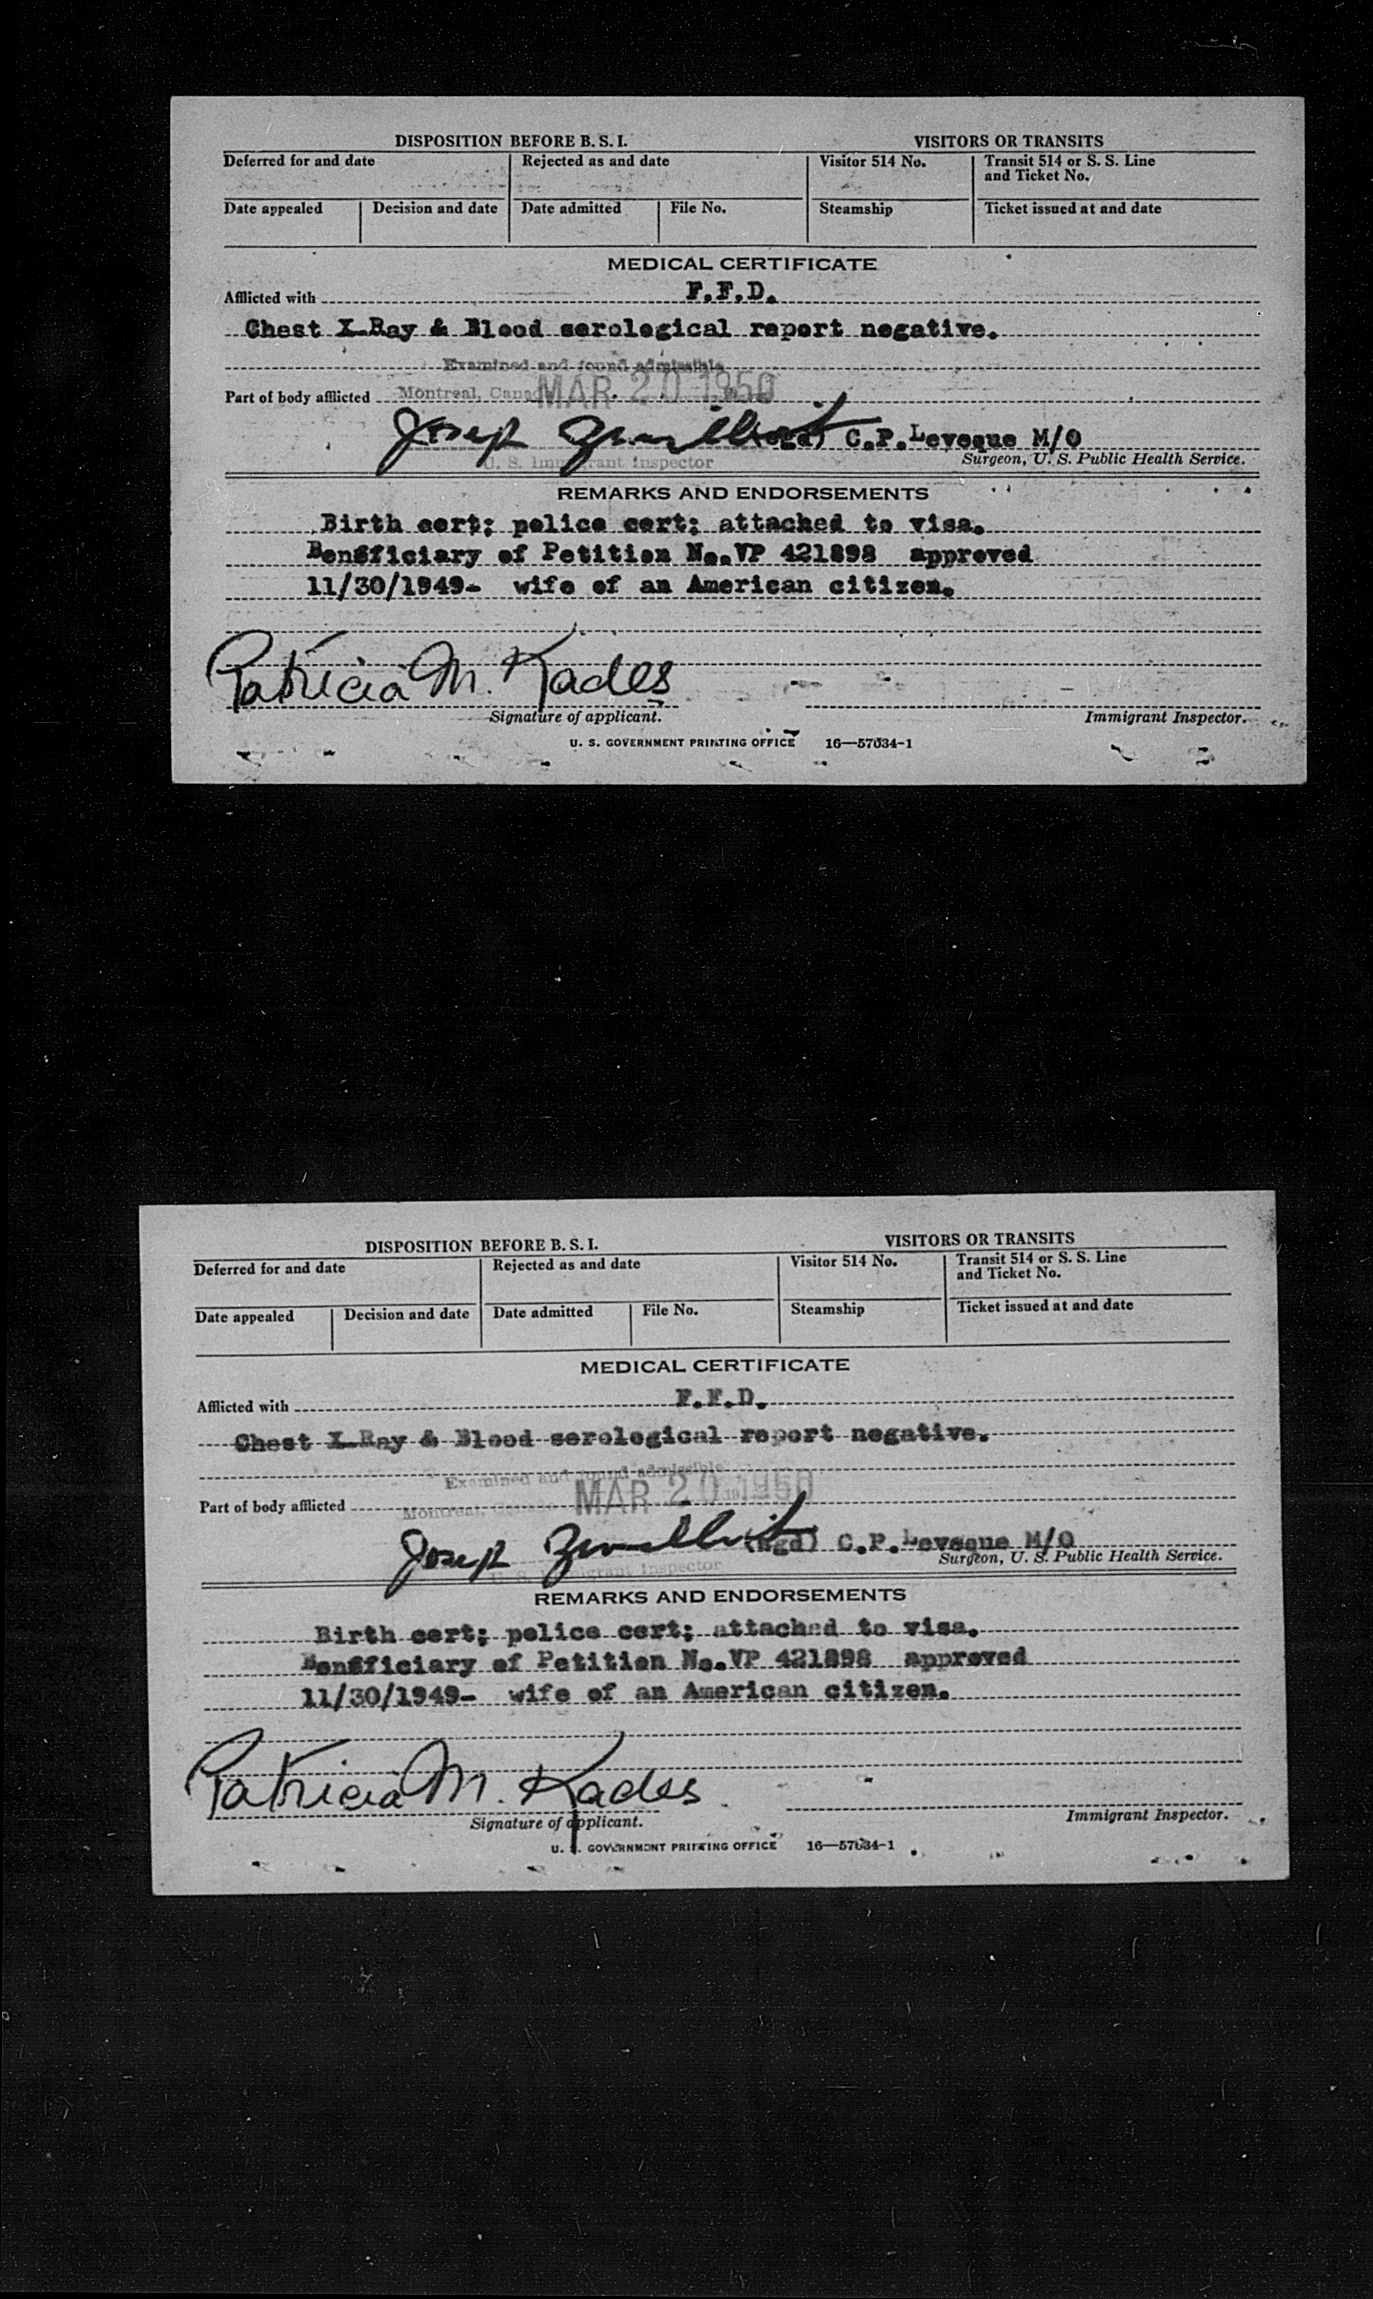 DISPOSITION BEFORE B. S. I. VISITORS OR TRANSITS
Deferred for and date Rejected as and date Visitor 514 No. Transit 514 or S. S. Line and Ticket No.
Date appealed Decision and date Date admitted File No. Steamship Ticket issued at and date
MEDICAL CERTIFICATE
Afflicted with F.F.D.
Chest X-Ray & Blood serological report negative.
Examined and found admissible
Part of body afflicted Montreal, Canada MAR 20 1950
Joseph (sgd) C.P.Leveque M/O
U. S. Immigrant Inspector Surgeon, U. S. Public Health Service.
REMARKS AND ENDORSEMENTS
Birth cert; police cert; attached to visa.
Beneficiary of Petition No.VP 421898 approved
11/30/1949- wife of an American citizen.
Patricia M. Kades
Signature of applicant. Immigrant Inspector.
U. S. GOVERNMENT PRINTING OFFICE 16—57034-1
DISPOSITION BEFORE B. S. I. VISITORS OR TRANSITS
Deferred for and date Rejected as and date Visitor 514 No. Transit 514 or S. S. Line and Ticket No.
Date appealed Decision and date Date admitted File No. Steamship Ticket issued at and date
MEDICAL CERTIFICATE
Afflicted with F.F.D.
Chest X-Ray & Blood serological report negative.
Examined and found admissible
Part of body afflicted Montreal, Canada MAR 20 1950
Joseph (sgd) C.P.Leveque M/O
U. S. Immigrant Inspector Surgeon, U. S. Public Health Service.
REMARKS AND ENDORSEMENTS
Birth cert; police cert; attached to visa.
Beneficiary of Petition No.VP 421898 approved
11/30/1949- wife of an American citizen.
Patricia M. Kades
Signature of applicant. Immigrant Inspector.
U. S. GOVERNMENT PRINTING OFFICE 16—57034-1